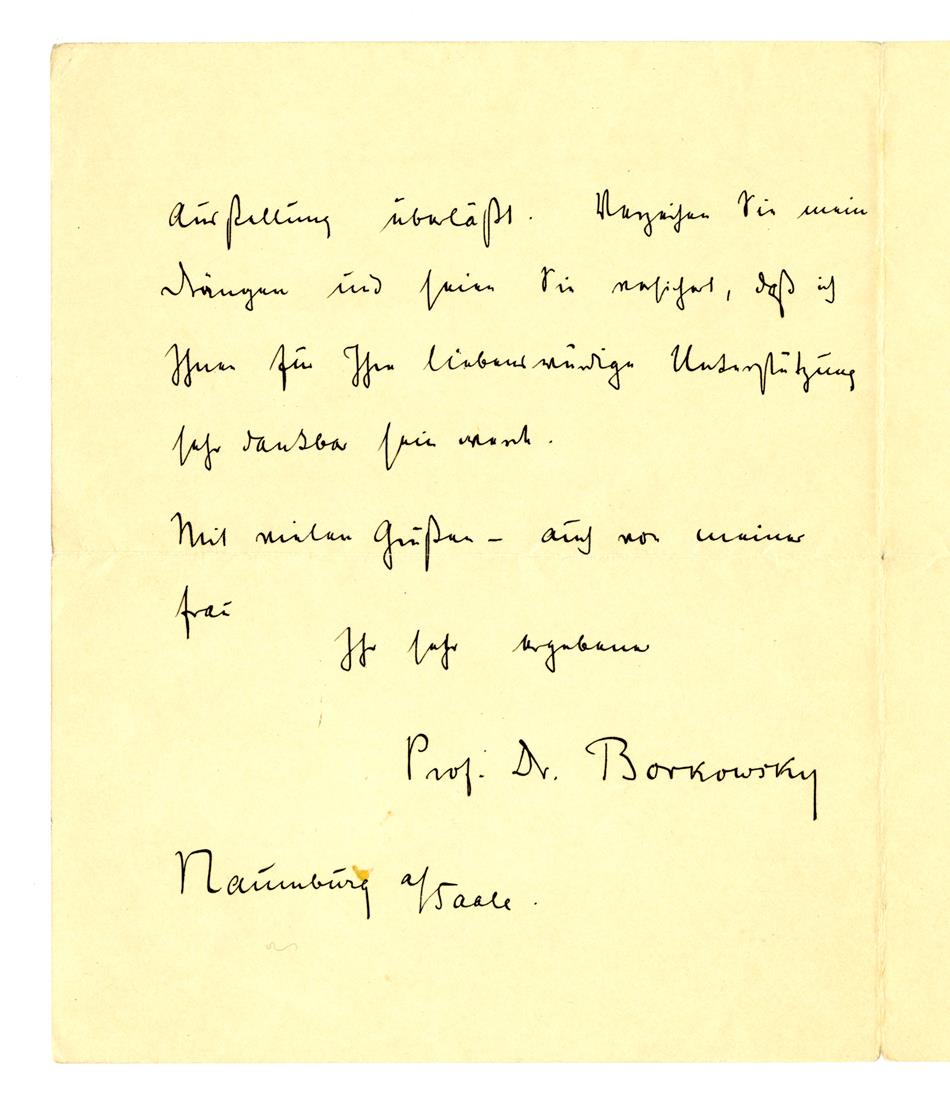 Ausstellung überläßt. Verzeihen Sie mein
Drängen und seien Sie versichert, daß ich
Ihnen für Ihre liebenswürdige Unterstützung
sehr dankbar sein werde.
Mit vielen Grüßen – auch von meiner
Frau
Ihr sehr ergebener
Prof. Dr. Borkowsky
Naumburg a/Saale.